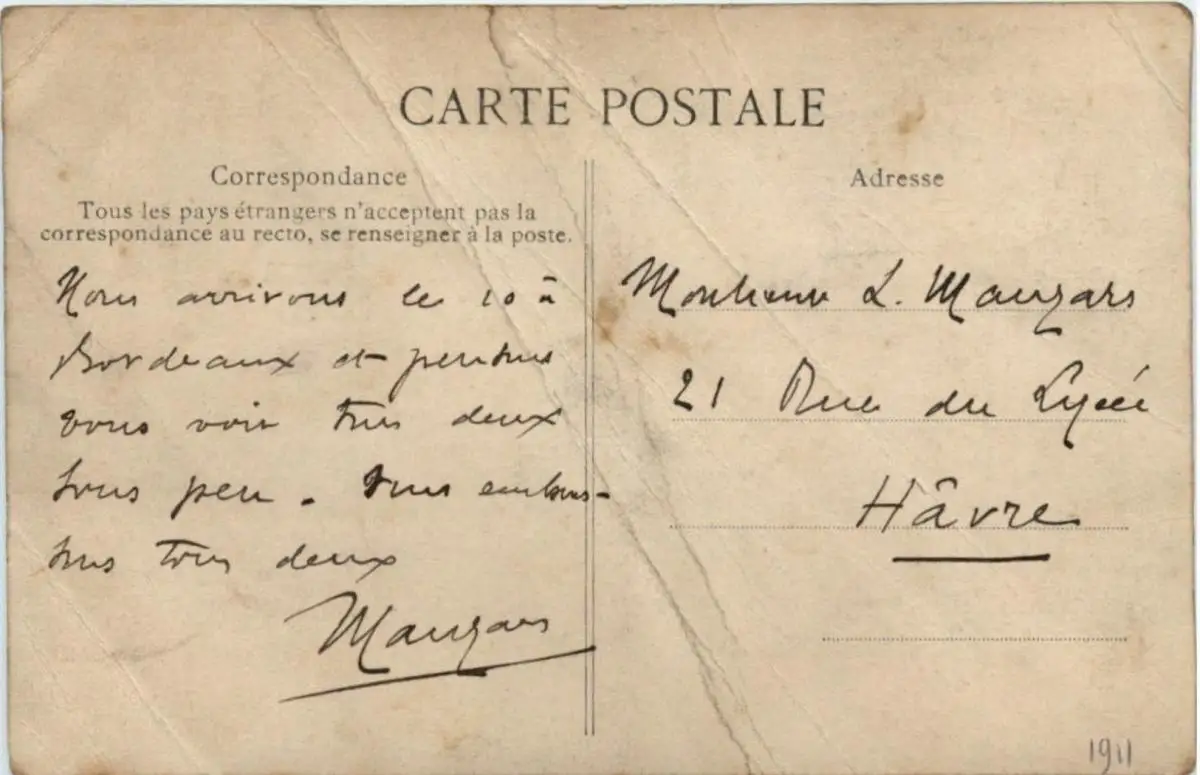 CARTE POSTALE
Correspondance
Tous les pays étrangers n'acceptent pas la
correspondance au recto, se renseigner à la poste.
Nous arrivons le 10 à
Bordeaux et pensons
vous voir tous deux
sous peu. Nous embras-
sons tous deux
Mauzars
Adresse
Monsieur L. Mauzars
21 Rue du Lycée
Hâvre
1911